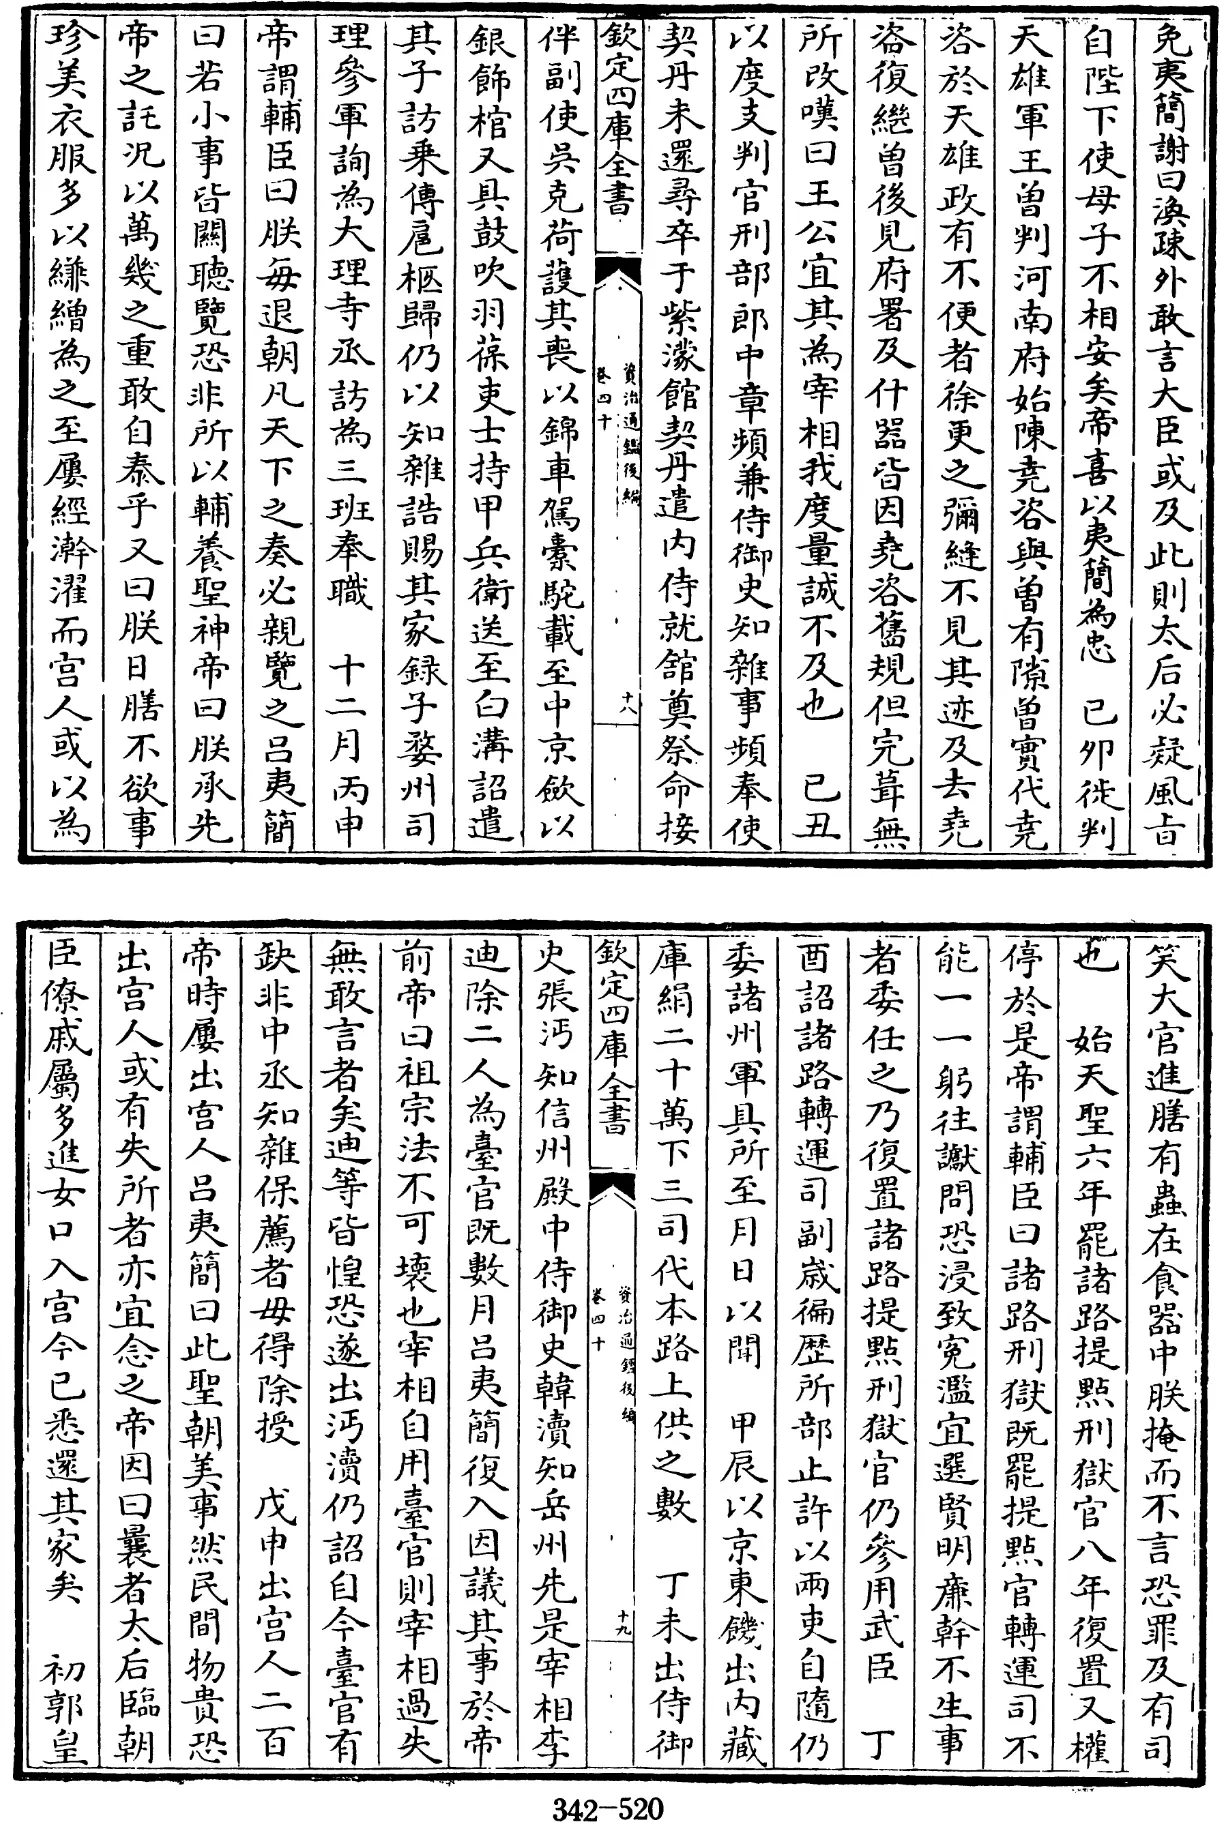 免夷簡謝曰渙疎外敢言大臣或及此則太后必疑風㫖
自陛下使母子不相安矣帝喜以夷簡為忠　已夘徙判
天雄軍王曾判河南府始陳堯咨與曾有隙曾實代堯
咨於天雄政有不便者徐更之彌縫不見其迹及去堯
咨復繼曾後見府署及什器皆因堯咨舊規但完葺無
所改嘆曰王公宜其為宰相我度量誠不及也　已丑
以度支判官刑部郎中章頻兼侍御史知雜事頻奉使
契丹未還尋卒于紫濛館契丹遣内侍就舘奠祭命接
欽定四庫全書
資治通鑑後編
卷四十
十八
伴副使吳克荷護其喪以錦車駕橐駝載至中京斂以
銀飾棺又具鼓吹羽葆吏士持甲兵衛送至白溝詔遣
其子訪乗傳扈柩歸仍以知雜誥賜其家録子婺州司
理參軍詢為大理寺丞訪為三班奉職　十二月丙申
帝謂輔臣曰朕毎退朝凡天下之奏必親覽之呂夷簡
曰若小事皆關聴覽恐非所以輔養聖神帝曰朕承先
帝之託況以萬幾之重敢自泰乎又曰朕日膳不欲事
珍美衣服多以縑繒為之至屢經澣濯而宫人或以為
笑大官進膳有蟲在食器中朕掩而不言恐罪及有司
也　始天聖六年罷諸路提㸃刑獄官八年復置又權
停於是帝謂輔臣曰諸路刑獄既罷提㸃官轉運司不
能一一躬往讞問恐浸致寃濫宜選賢明廉幹不生事
者委任之乃復置諸路提㸃刑獄官仍參用武臣　丁
酉詔諸路轉運司副歳徧歴所部止許以兩吏自隨仍
委諸州軍具所至月日以聞　甲辰以京東饑出内藏
庫絹二十萬下三司代本路上供之數　丁未出侍御
欽定四庫全書
資治通鑑後編
卷四十
十九
史張沔知信州殿中侍御史韓瀆知岳州先是宰相李
迪除二人為臺官既數月呂夷簡復入因議其事於帝
前帝曰祖宗法不可壊也宰相自用臺官則宰相過失
無敢言者矣迪等皆惶恐遂出沔瀆仍詔自今臺官有
缺非中丞知雜保薦者毋得除授　戊申出宫人二百
帝時屢出宫人呂夷簡曰此聖朝美事然民間物貴恐
出宫人或有失所者亦宜念之帝因曰曩者太后臨朝
臣僚戚屬多進女口入宫今已悉還其家矣　初郭皇
342-520